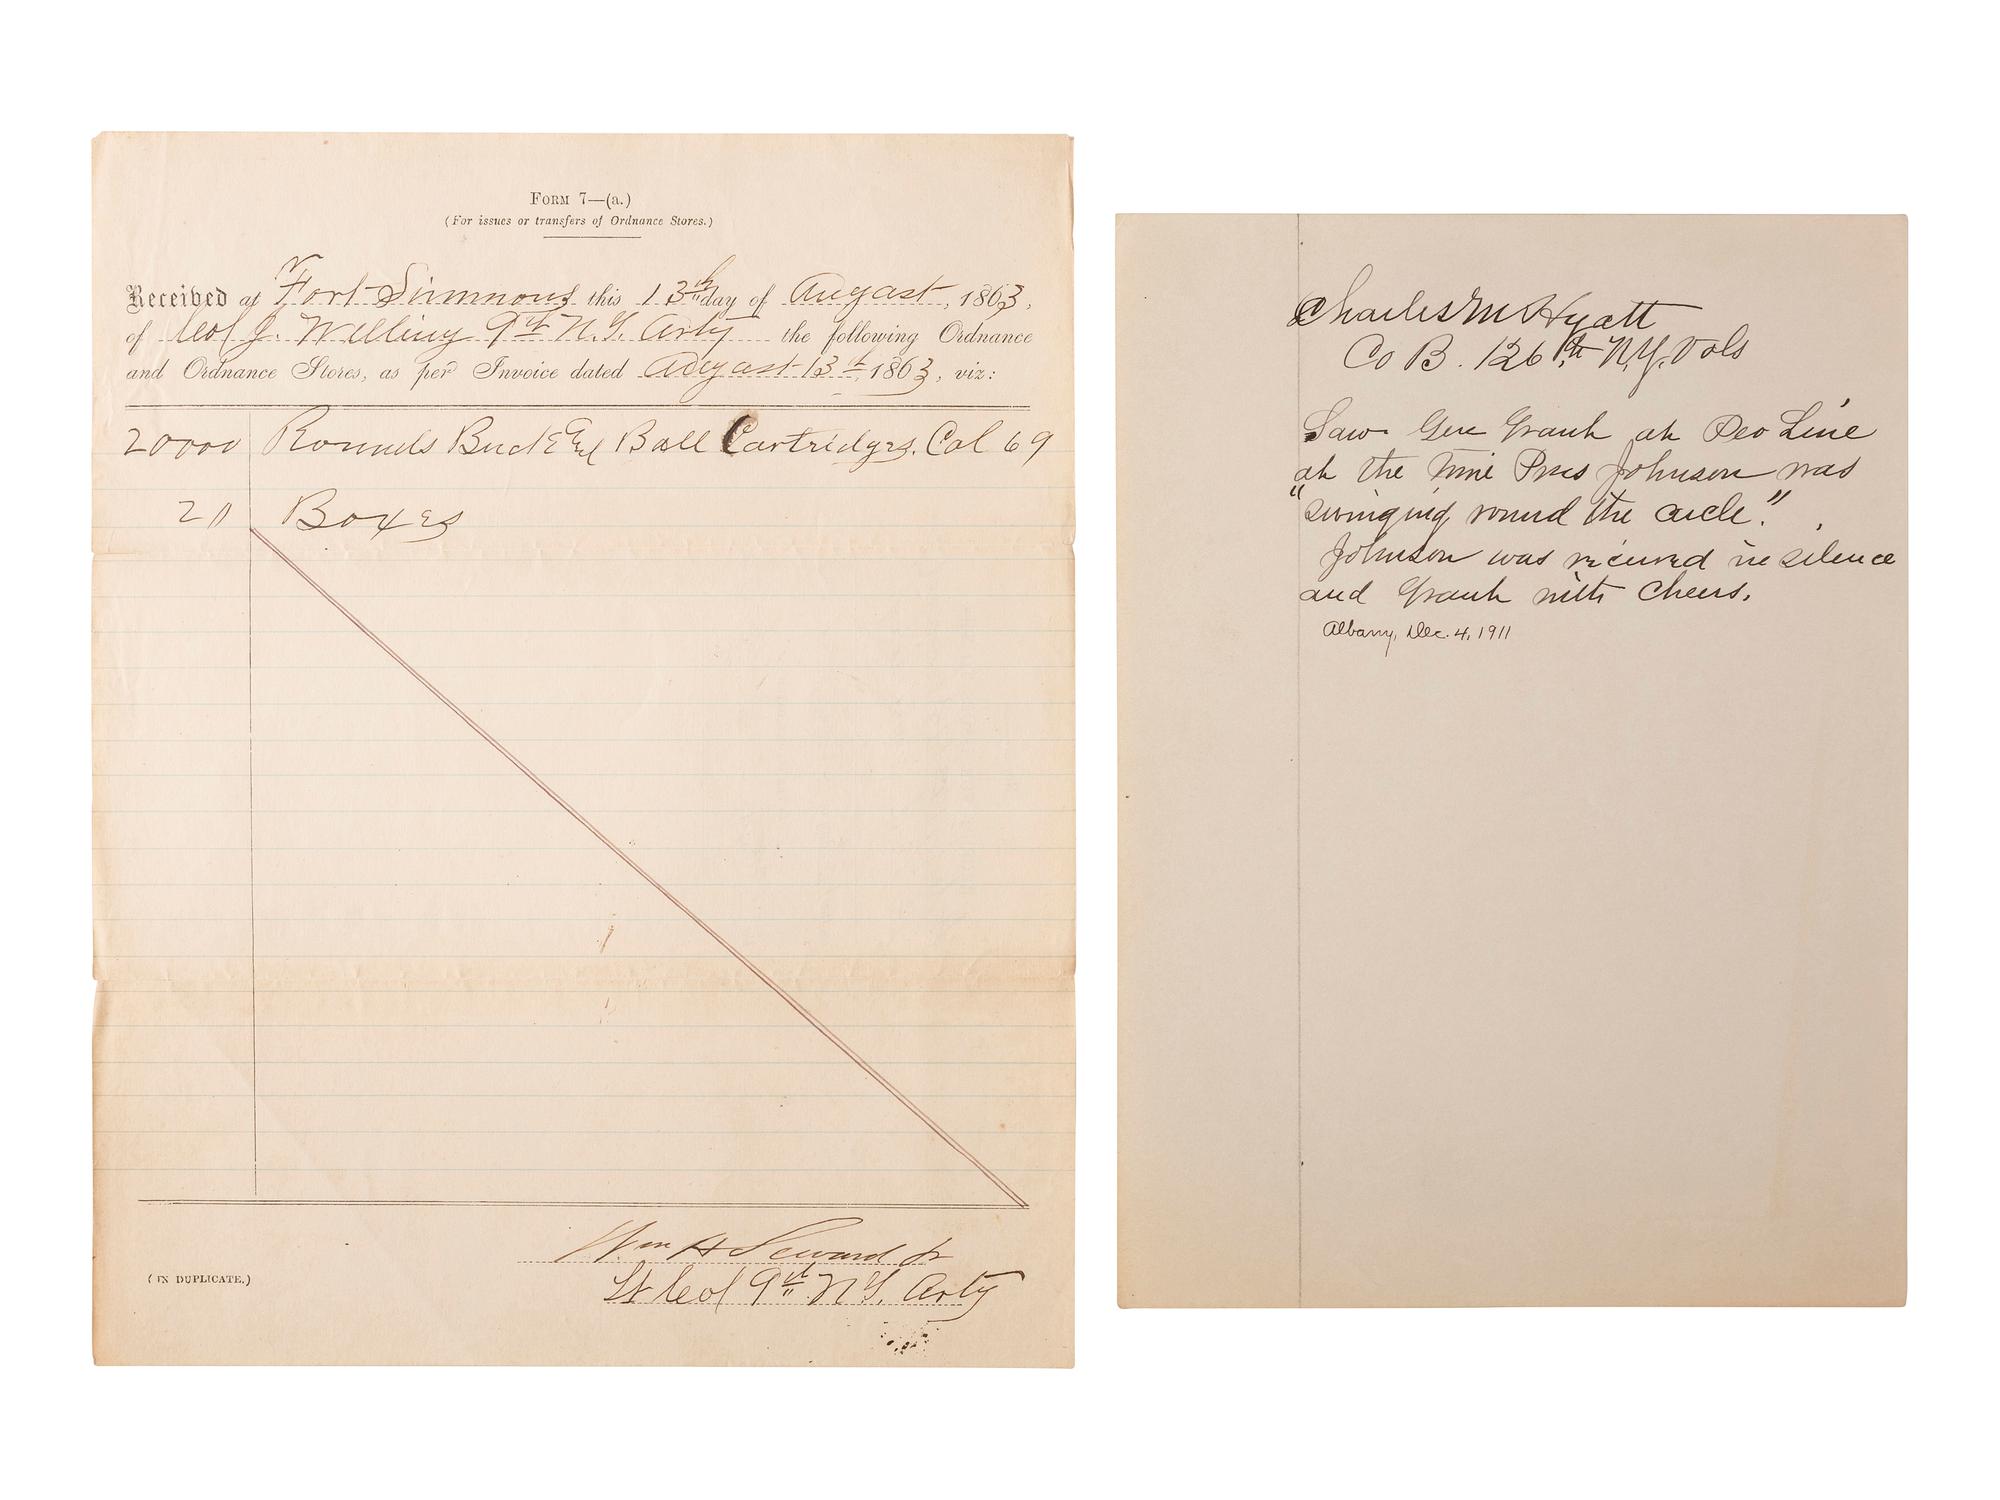 Form 7—(a.)
(For issues or transfers of Ordnance Stores.)
Received at Fort Simmons this 13th day of August, 1863,
of Col J. Welling 9th N.Y. Arty the following Ordnance
and Ordnance Stores, as per Invoice dated August 13th 1863, viz:
20000 Rounds Buck & Ball Cartridges. Cal 69
20 Boxes
(IN DUPLICATE.)
Wm H Seward Jr
Lt Col 9th N.Y. Arty
Charles M Hyatt
Co B. 126th N.Y. Vols
Saw Gen Grant at Line
at the time Pres Johnson was
"swinging round the circle."
Johnson was received in silence
and Grant with cheers.
Albany, Dec. 4, 1911